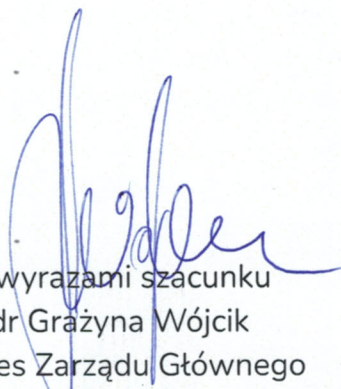 wyrazami szacunku
dr Grażyna Wójcik
es Zarządu Głównego